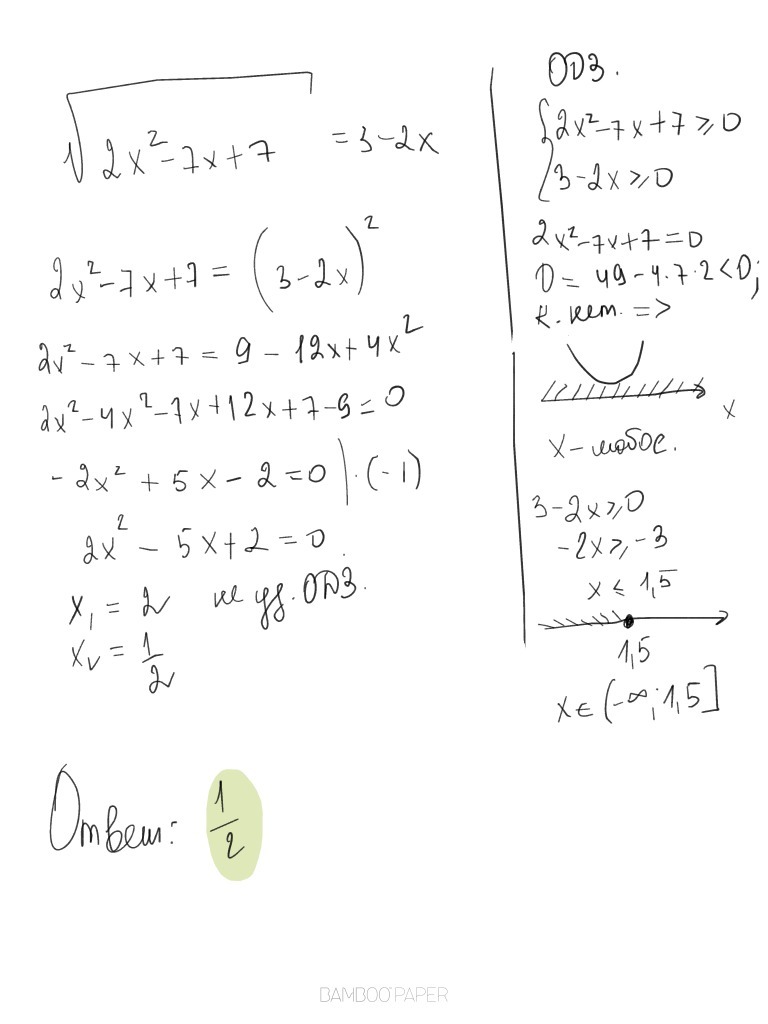 √(2x²-7x+7) = 3-2x
2x²-7x+7 = (3-2x)²
2x²-7x+7 = 9-12x+4x²
2x²-4x²-7x+12x+7-9=0
-2x²+5x-2=0 |·(-1)
2x²-5x+2=0
x₁ = 2 не уд. ОДЗ.
x₂ = 1/2
Ответ: 1/2
ОДЗ.
{2x²-7x+7≥0
{3-2x≥0
2x²-7x+7=0
D = 49-4·7·2<0;
к. нет. =>
x
x-любое.
3-2x≥0
-2x≥-3
x≤1,5
1,5
x∈(-∞;1,5]
BAMBOO PAPER